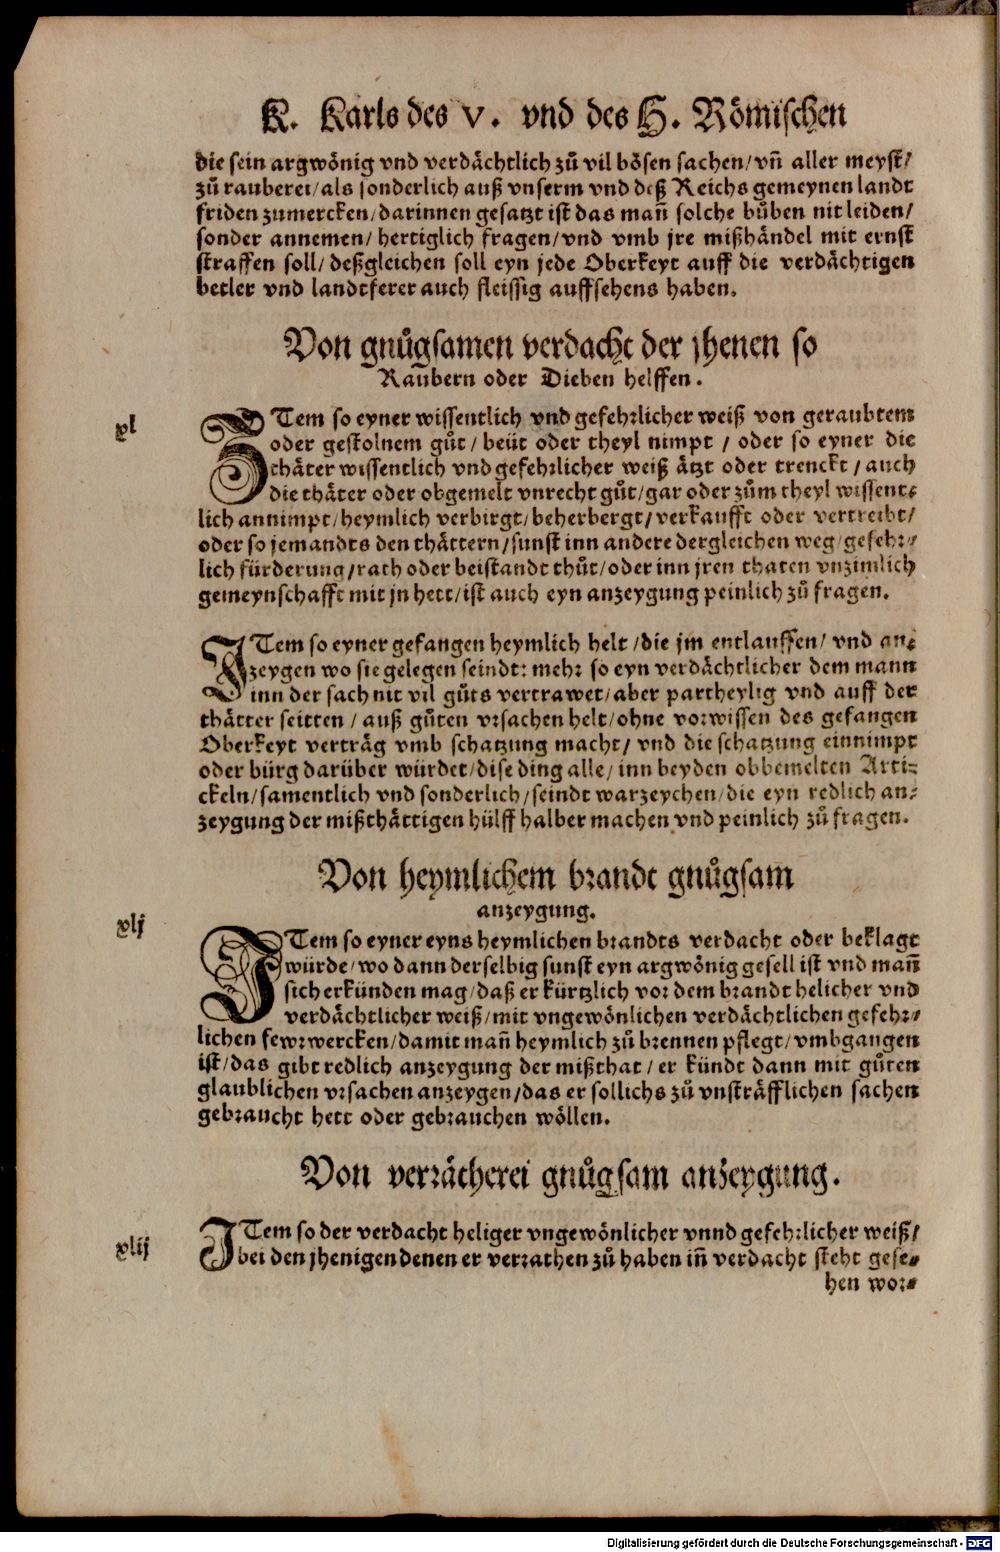 K. Karls des V. vnd des H. Römischen
die sein argwönig vnd verdächtlich zů vil bösen sachen/ vñ aller meyst/
zů rauberei/ als sonderlich auß vnserm vnd deß Reichs gemeynen landt
friden zumercken/ darinnen gesatzt ist das mañ solche bůben nit leiden/
sonder annemen/ hertiglich fragen/ vnd vmb jre mißhändel mit ernst
straffen soll/ deßgleichen soll eyn jede Oberkeyt auff die verdächtigen
betler vnd landtferer auch fleissig auffsehens haben.
Von gnůgsamen verdacht der jhenen so
Raubern oder Dieben helffen.
xl
ITem so eyner wissentlich vnd gefehrlicher weiß von geraubtem
oder gestolnem gůt/ beüt oder theyl nimpt / oder so eyner die
thäter wissentlich vnd gefehrlicher weiß ätzt oder trenckt / auch
die thäter oder obgemelt vnrecht gůt/ gar oder zům theyl wissent-
lich annimpt/ heymlich verbirgt/ beherbergt/ verkaufft oder vertreibt/
oder so jemandts den thättern/ sunst inn andere dergleichen weg/ gefehr-
lich fürderung/ rath oder beistandt thůt/ oder inn jren thaten vnzimlich
gemeynschafft mit jn hett/ ist auch eyn anzeygung peinlich zů fragen.
ITem so eyner gefangen heymlich helt/ die jm entlauffen/ vnd an-
zeygen wo sie gelegen seindt: mehr so eyn verdächtlicher dem mann
inn der sach nit vil gůts vertrawet/ aber partheylig vnd auff der
thätter seitten / auß gůten vrsachen helt/ ohne vorwissen des gefangen
Oberkeyt verträg vmb schatzung macht/ vnd die schatzung einnimpt
oder bürg darüber würdet/ dise ding alle/ inn beyden obbemelten Arti-
ckeln/ samentlich vnd sonderlich/ seindt warzeychen/ die eyn redlich an-
zeygung der mißthättigen hülff halber machen vnd peinlich zů fragen.
Von heymlichem brandt gnůgsam
anzeygung.
xlj
ITem so eyner eyns heymlichen brandts verdacht oder beklagt
würde/ wo dann derselbig sunst eyn argwönig gesell ist vnd mañ
sich erkünden mag/ daß er kürtzlich vor dem brandt helicher vnd
verdächtlicher weiß/ mit vngewönlichen verdächtlichen gefehr-
lichen fewrwercken/ damit mañ heymlich zů brennen pflegt/ vmbgangen
ist/ das gibt redlich anzeygung der mißthat/ er kündt dann mit gůten
glaublichen vrsachen anzeygen/ das er sollichs zů vnsträfflichen sachen
gebraucht hett oder gebrauchen wöllen.
Von verrächerei gnůgsam anzeygung.
xlij
ITem so der verdacht heliger vngewönlicher vnnd gefehrlicher weiß/
bei den jhenigen denen er verrathen zů haben iñ verdacht steht gese-
hen wor-
Digitalisierung gefördert durch die Deutsche Forschungsgemeinschaft - DFG